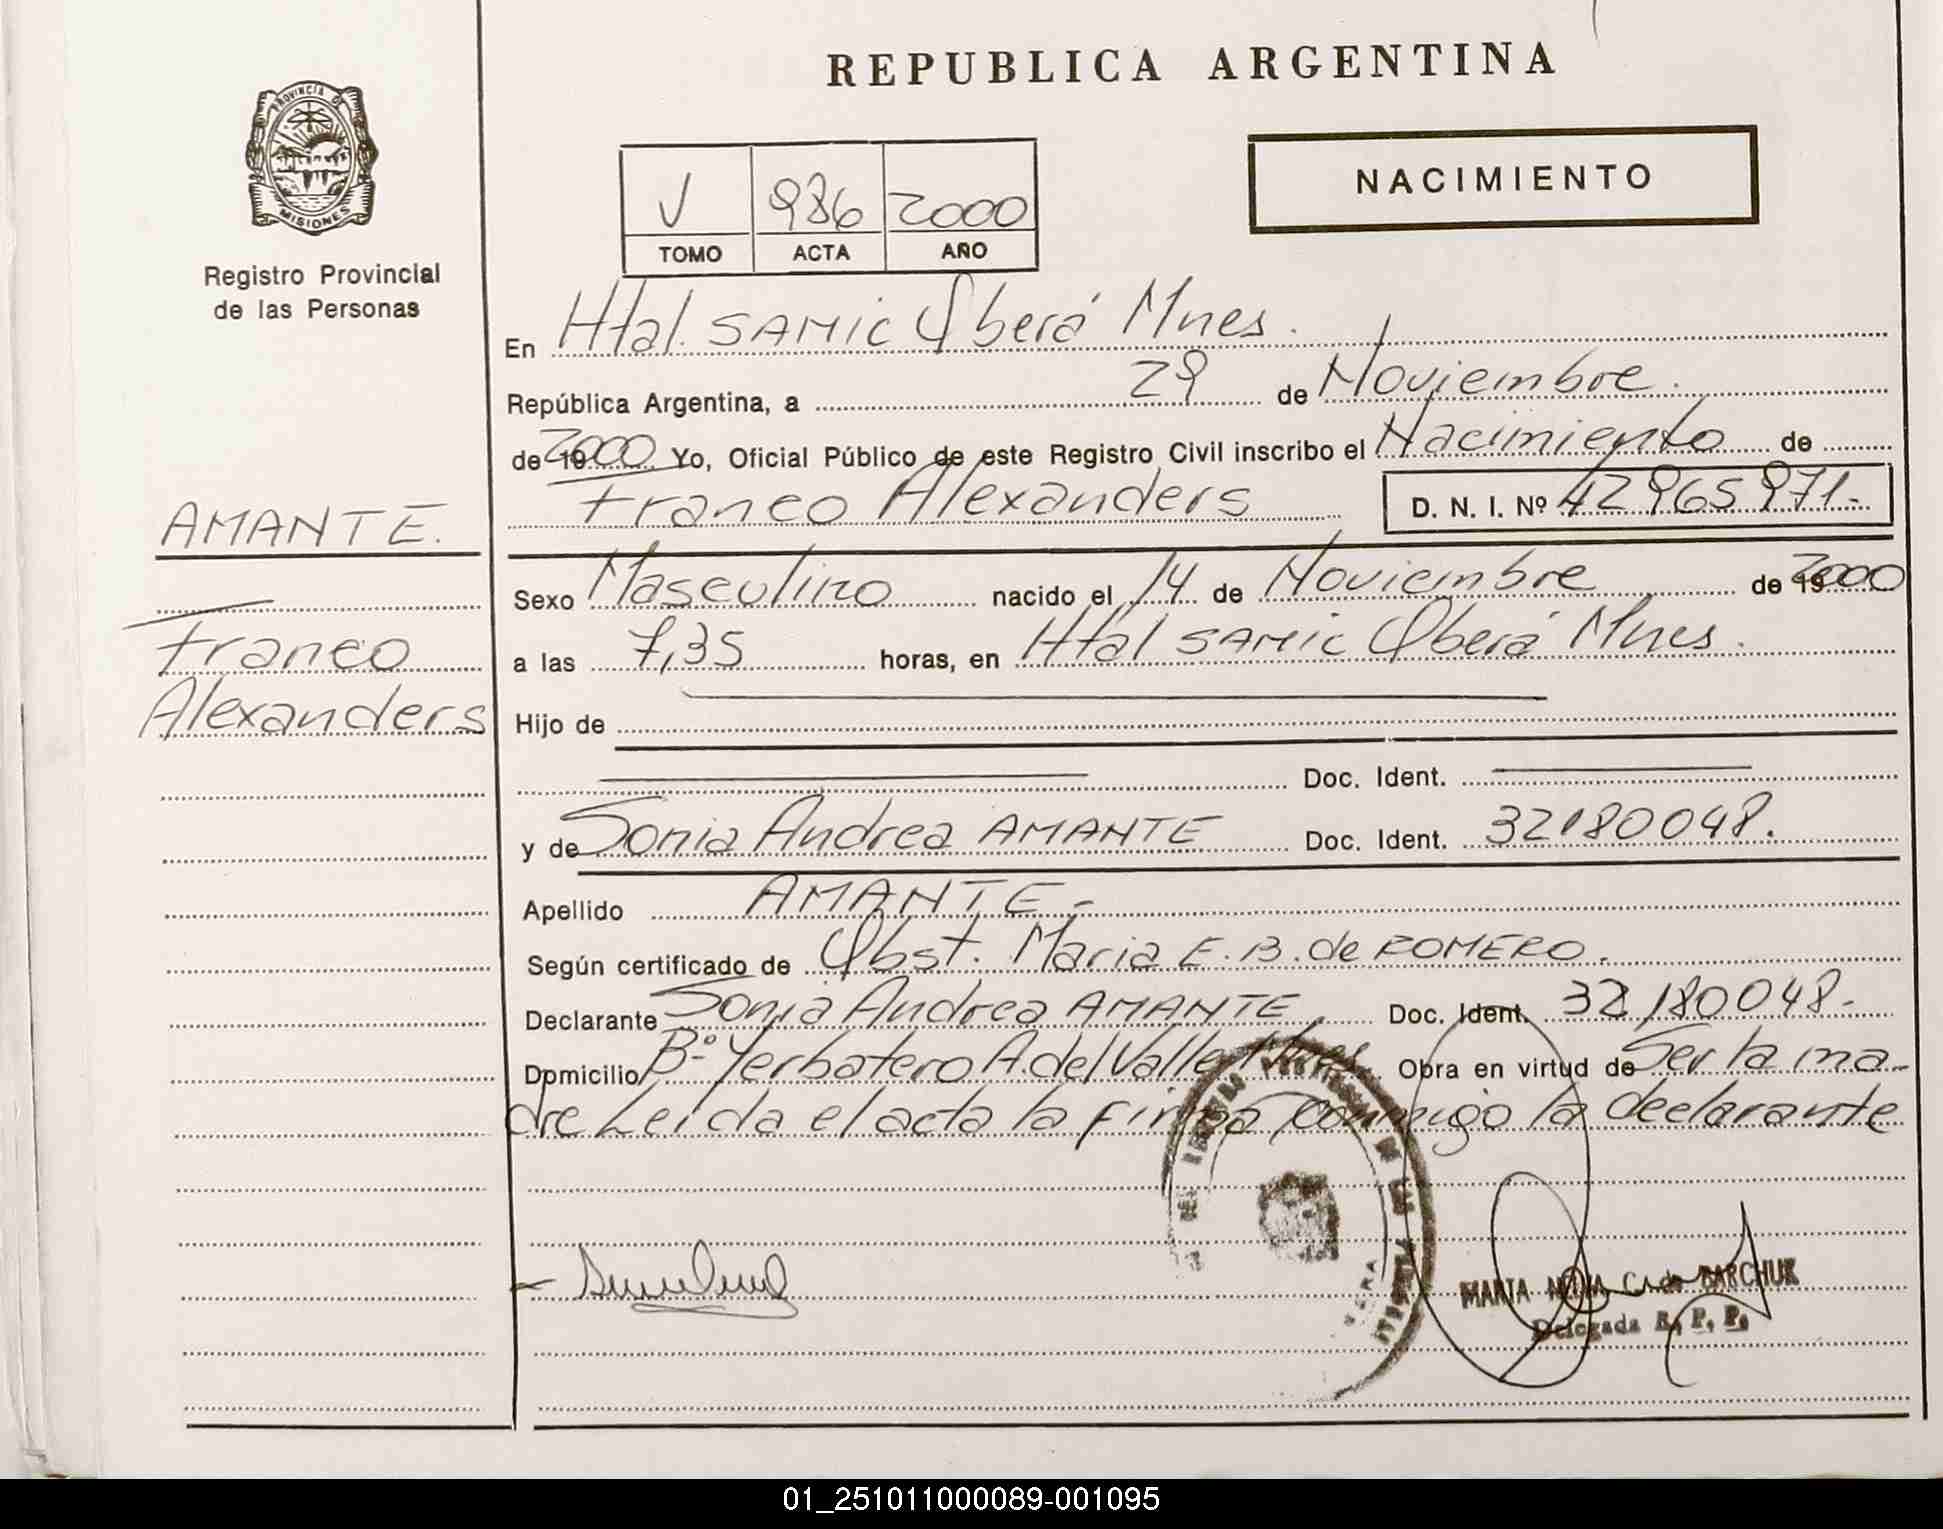 REPUBLICA ARGENTINA
PROVINCIA DE
MISIONES
Registro Provincial
de las Personas
V 986 2000
TOMO ACTA AÑO
NACIMIENTO
En Htal. SAMIC Oberá Mnes.
República Argentina, a 29 de Noviembre.
de 2000 Yo, Oficial Público de este Registro Civil inscribo el Nacimiento de
Franco Alexanders D. N. I. Nº 42965971.-
AMANTE.
Franco
Alexanders
Sexo Masculino nacido el 14 de Noviembre de 19 2000
a las 7,35 horas, en Htal SAMIC Oberá Mnes.
Hijo de
Doc. Ident.
y de Sonia Andrea AMANTE Doc. Ident. 32180048.
Apellido AMANTE-
Según certificado de Obst. Maria E. B. de ROMERO.
Declarante Sonia Andrea AMANTE Doc. Ident. 32,180048.-
Domicilio Bº Yerbatero A. del Valle Mnes. Obra en virtud de Ser la ma-
dre Leida el acta la firma conmigo la declarante
MARTA C. de BARCHUK
Delegada R. P. P.
01_251011000089-001095